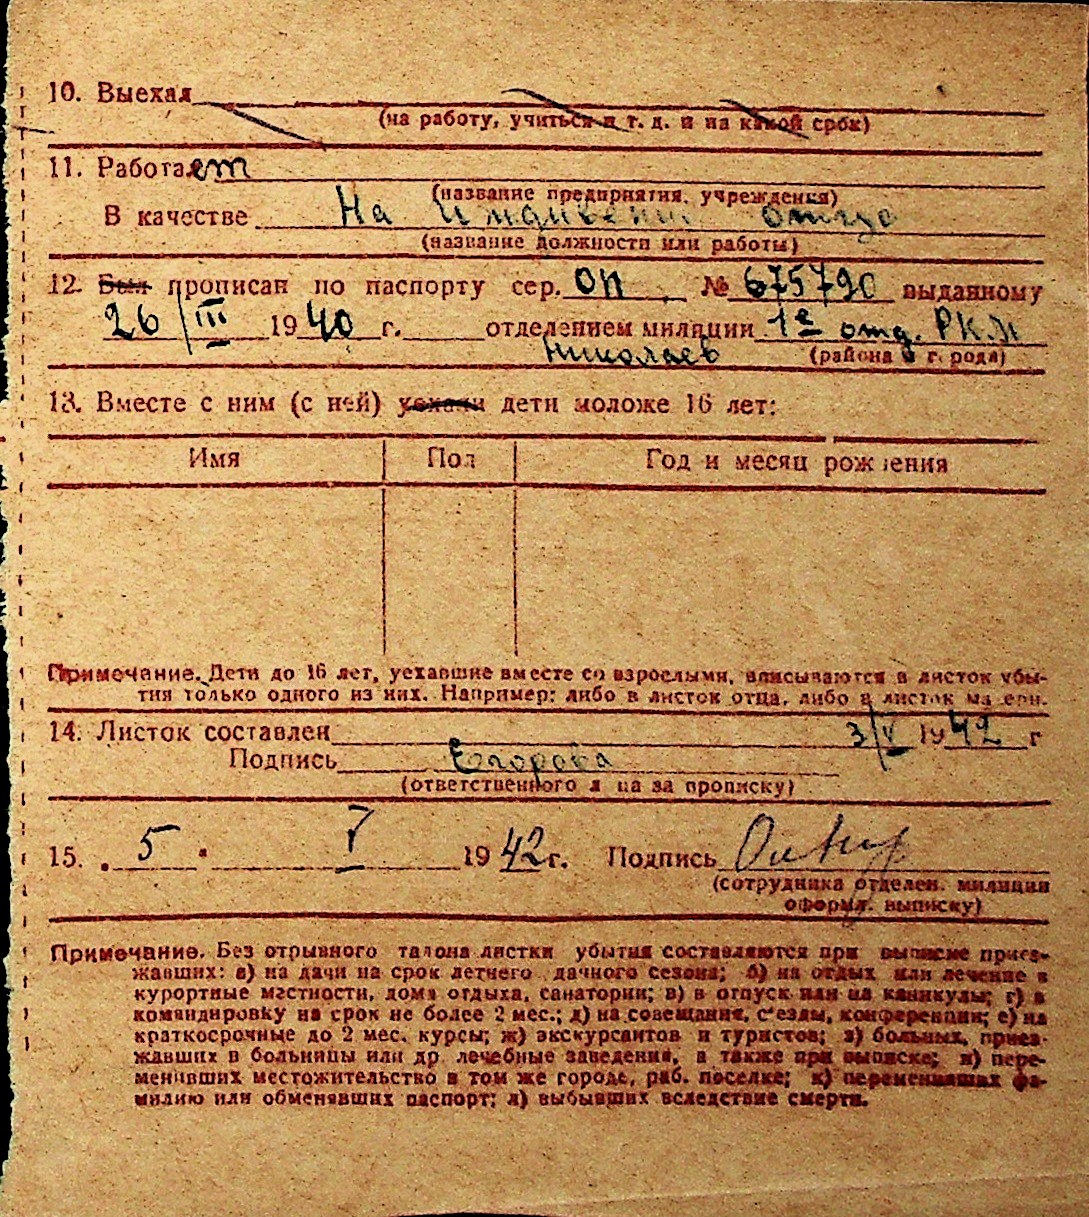 10. Выехал
(на работу, учиться и т. д. и на какой срок)
11. Работает
(название предприятия, учреждения)
В качестве На иждивении отца
(название должности или работы)
12. Был прописан по паспорту сер. ОП № 675790 выданному
26/III 1940 г. отделением милиции 1е отд. РКМ
Николаев (района и города)
13. Вместе с ним (с ней) уехали дети моложе 16 лет:
Имя Пол Год и месяц рождения
Примечание. Дети до 16 лет, уехавшие вместе со взрослыми, вписываются в листок убы-
тия только одного из них. Например: либо в листок отца, либо в листок матери.
14. Листок составлен 3/V 1942 г
Подпись Егорова
(ответственного лица за прописку)
15. 5 V 1942 г. Подпись
(сотрудника отделен. милиции
оформл. выписку)
Примечание. Без отрывного талона листки убытия составляются при выписке приез-
жавших: а) на дачи на срок летнего дачного сезона; б) на отдых или лечение в
курортные местности, дома отдыха, санатории; в) в отпуск или на каникулы; г) в
командировку на срок не более 2 мес.; д) на совещания, с'езды, конференции; е) на
краткосрочные до 2 мес. курсы; ж) экскурсантов и туристов; з) больных, приез-
жавших в больницы или др лечебные заведения, а также при выписке; и) пере-
менивших местожительство в том же городе, раб. поселке; к) переменивших фа-
милию или обменявших паспорт; л) выбывших вследствие смерти.